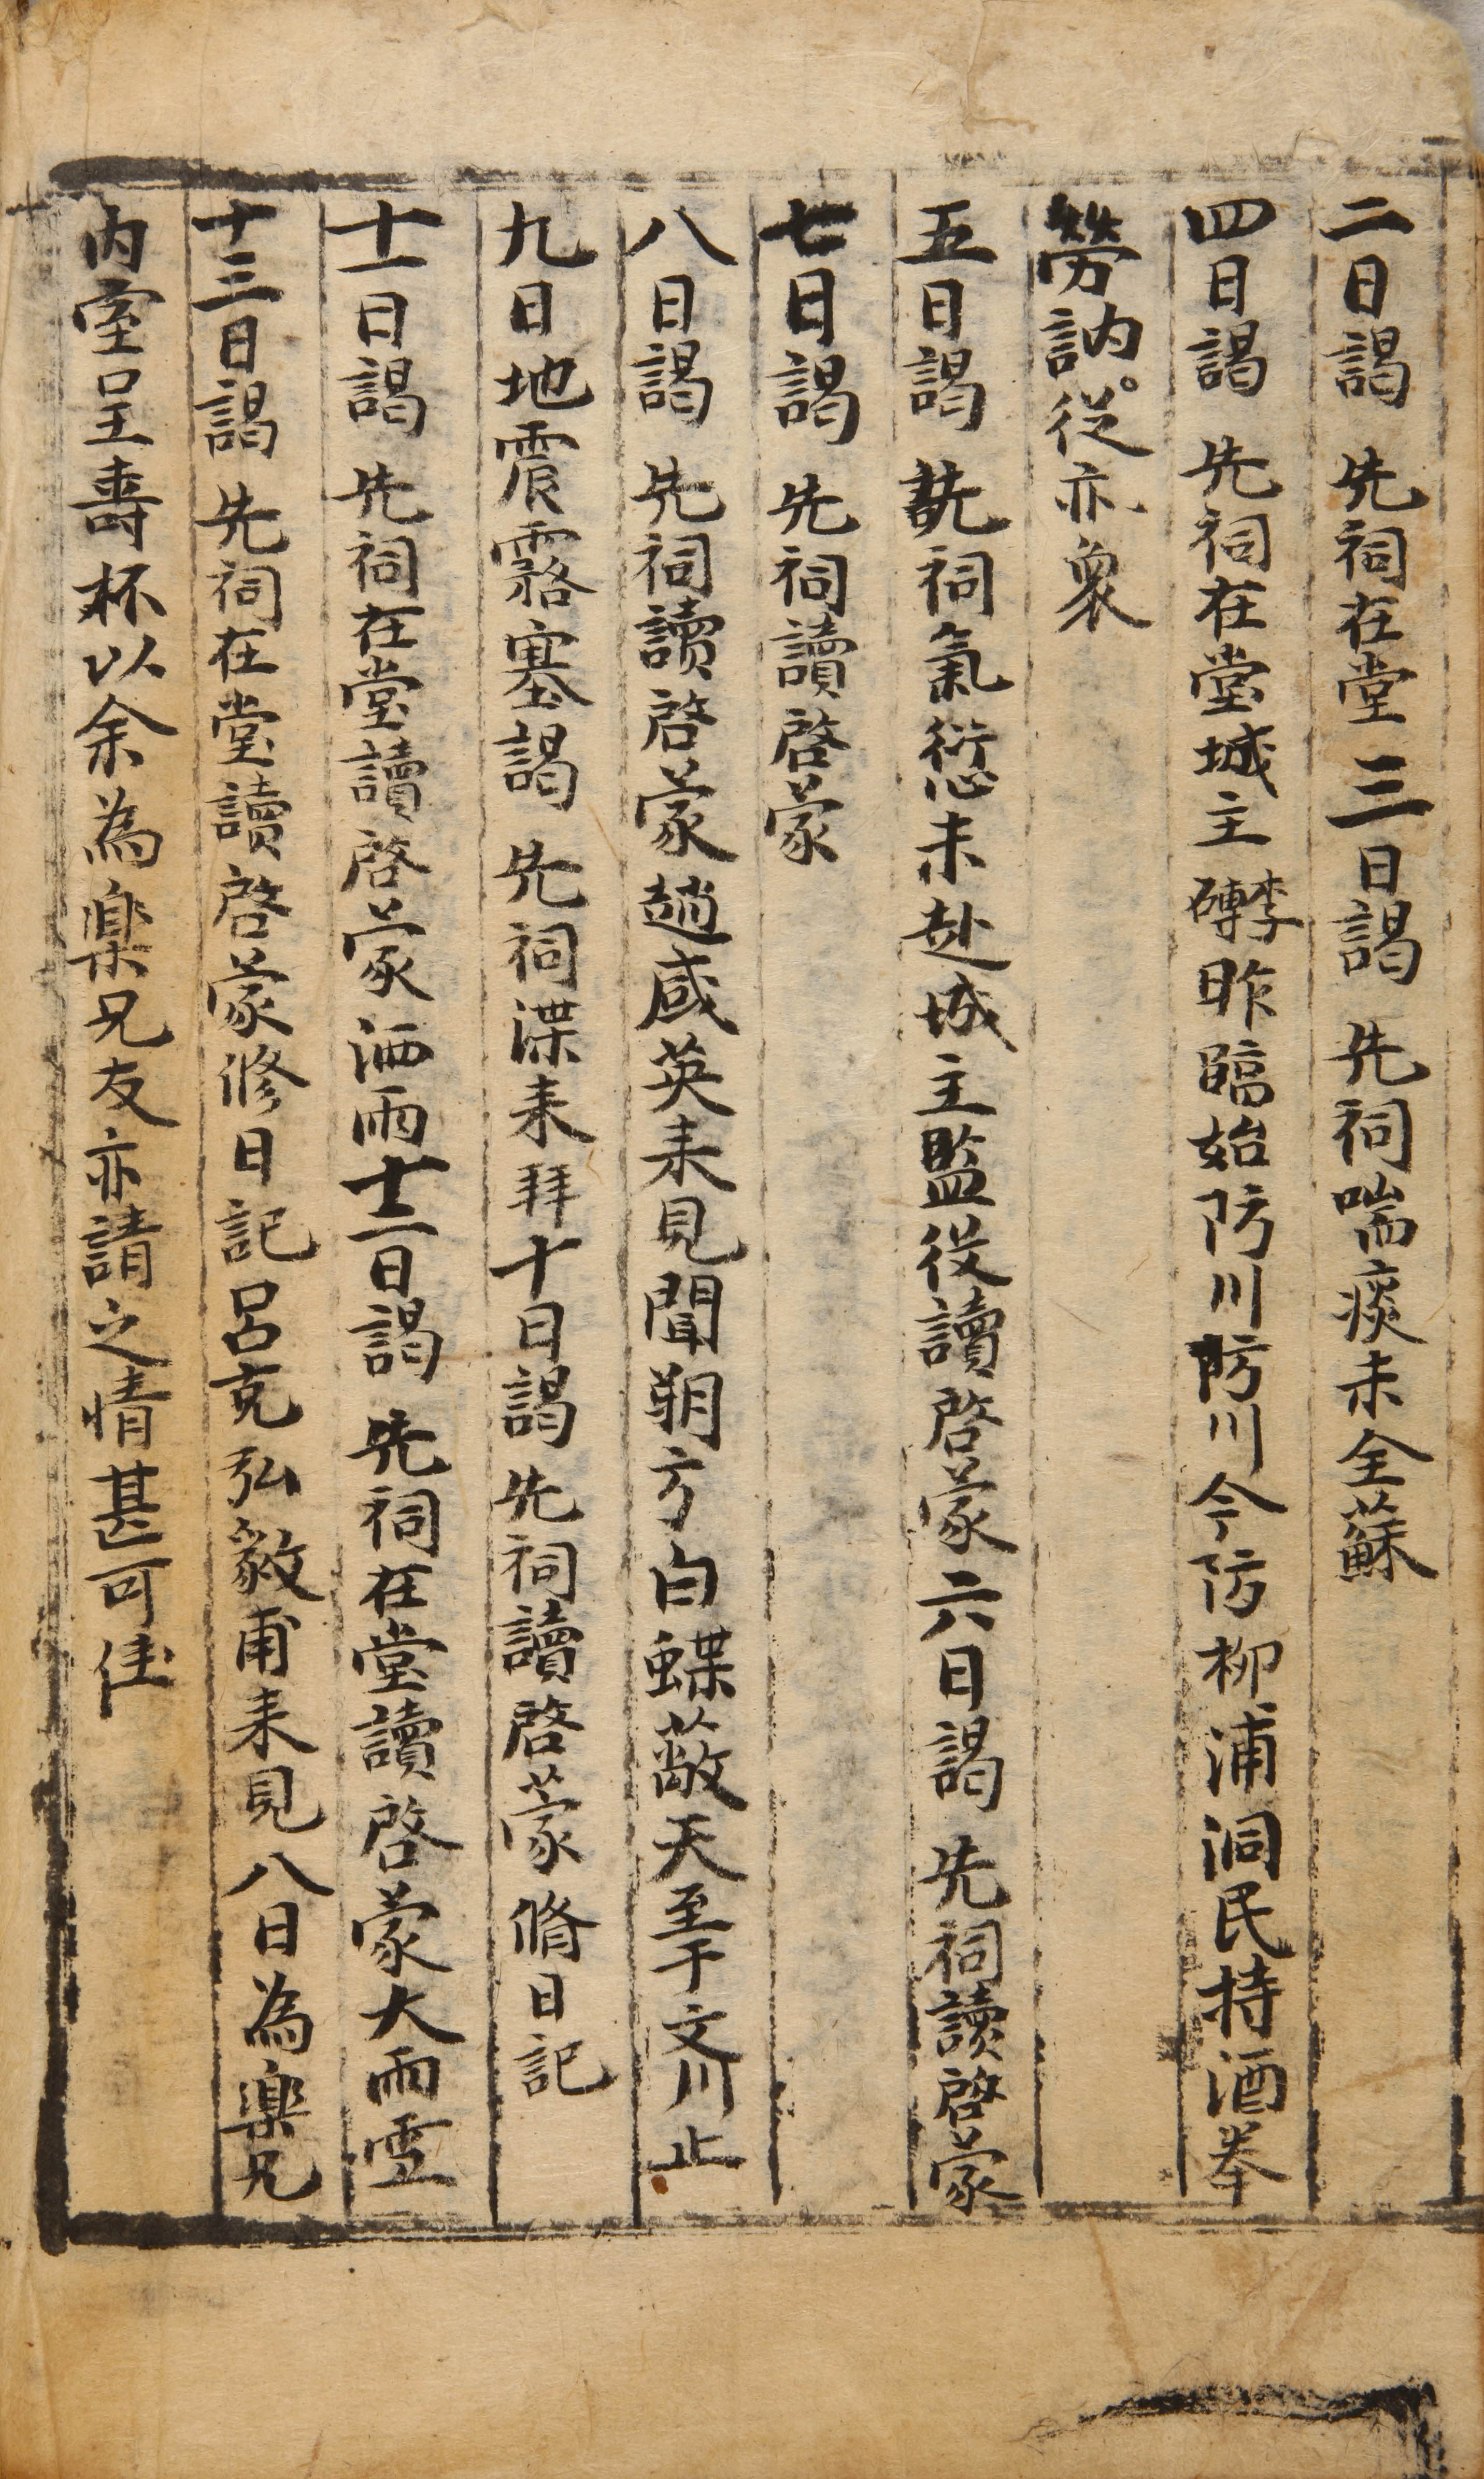 二日謁 先祠在堂 三日謁 先祠喘痰未全蘇
四日謁 先祠在堂城主昨臨始防川防川今防柳浦洞民持酒奉
勞訥從亦衆
五日謁 先祠氣愆未赴城主監役讀啓蒙 六日謁 先祠讀啓蒙
七日謁 先祠讀啓蒙
八日謁 先祠讀啓蒙趙咸英来見聞朔方白蝶蔽天至于文川止
九日地震霧塞謁 先祠渫来拜十日謁 先祠讀啓蒙脩日記
十一日謁 先祠在堂讀啓蒙洒雨十二日謁 先祠在堂讀啓蒙大雨雪
十三日謁 先祠在堂讀啓蒙修日記呂克弘毅甫来見八日為樂兄
內室呈壽杯以余為樂兄友亦請之情甚可佳